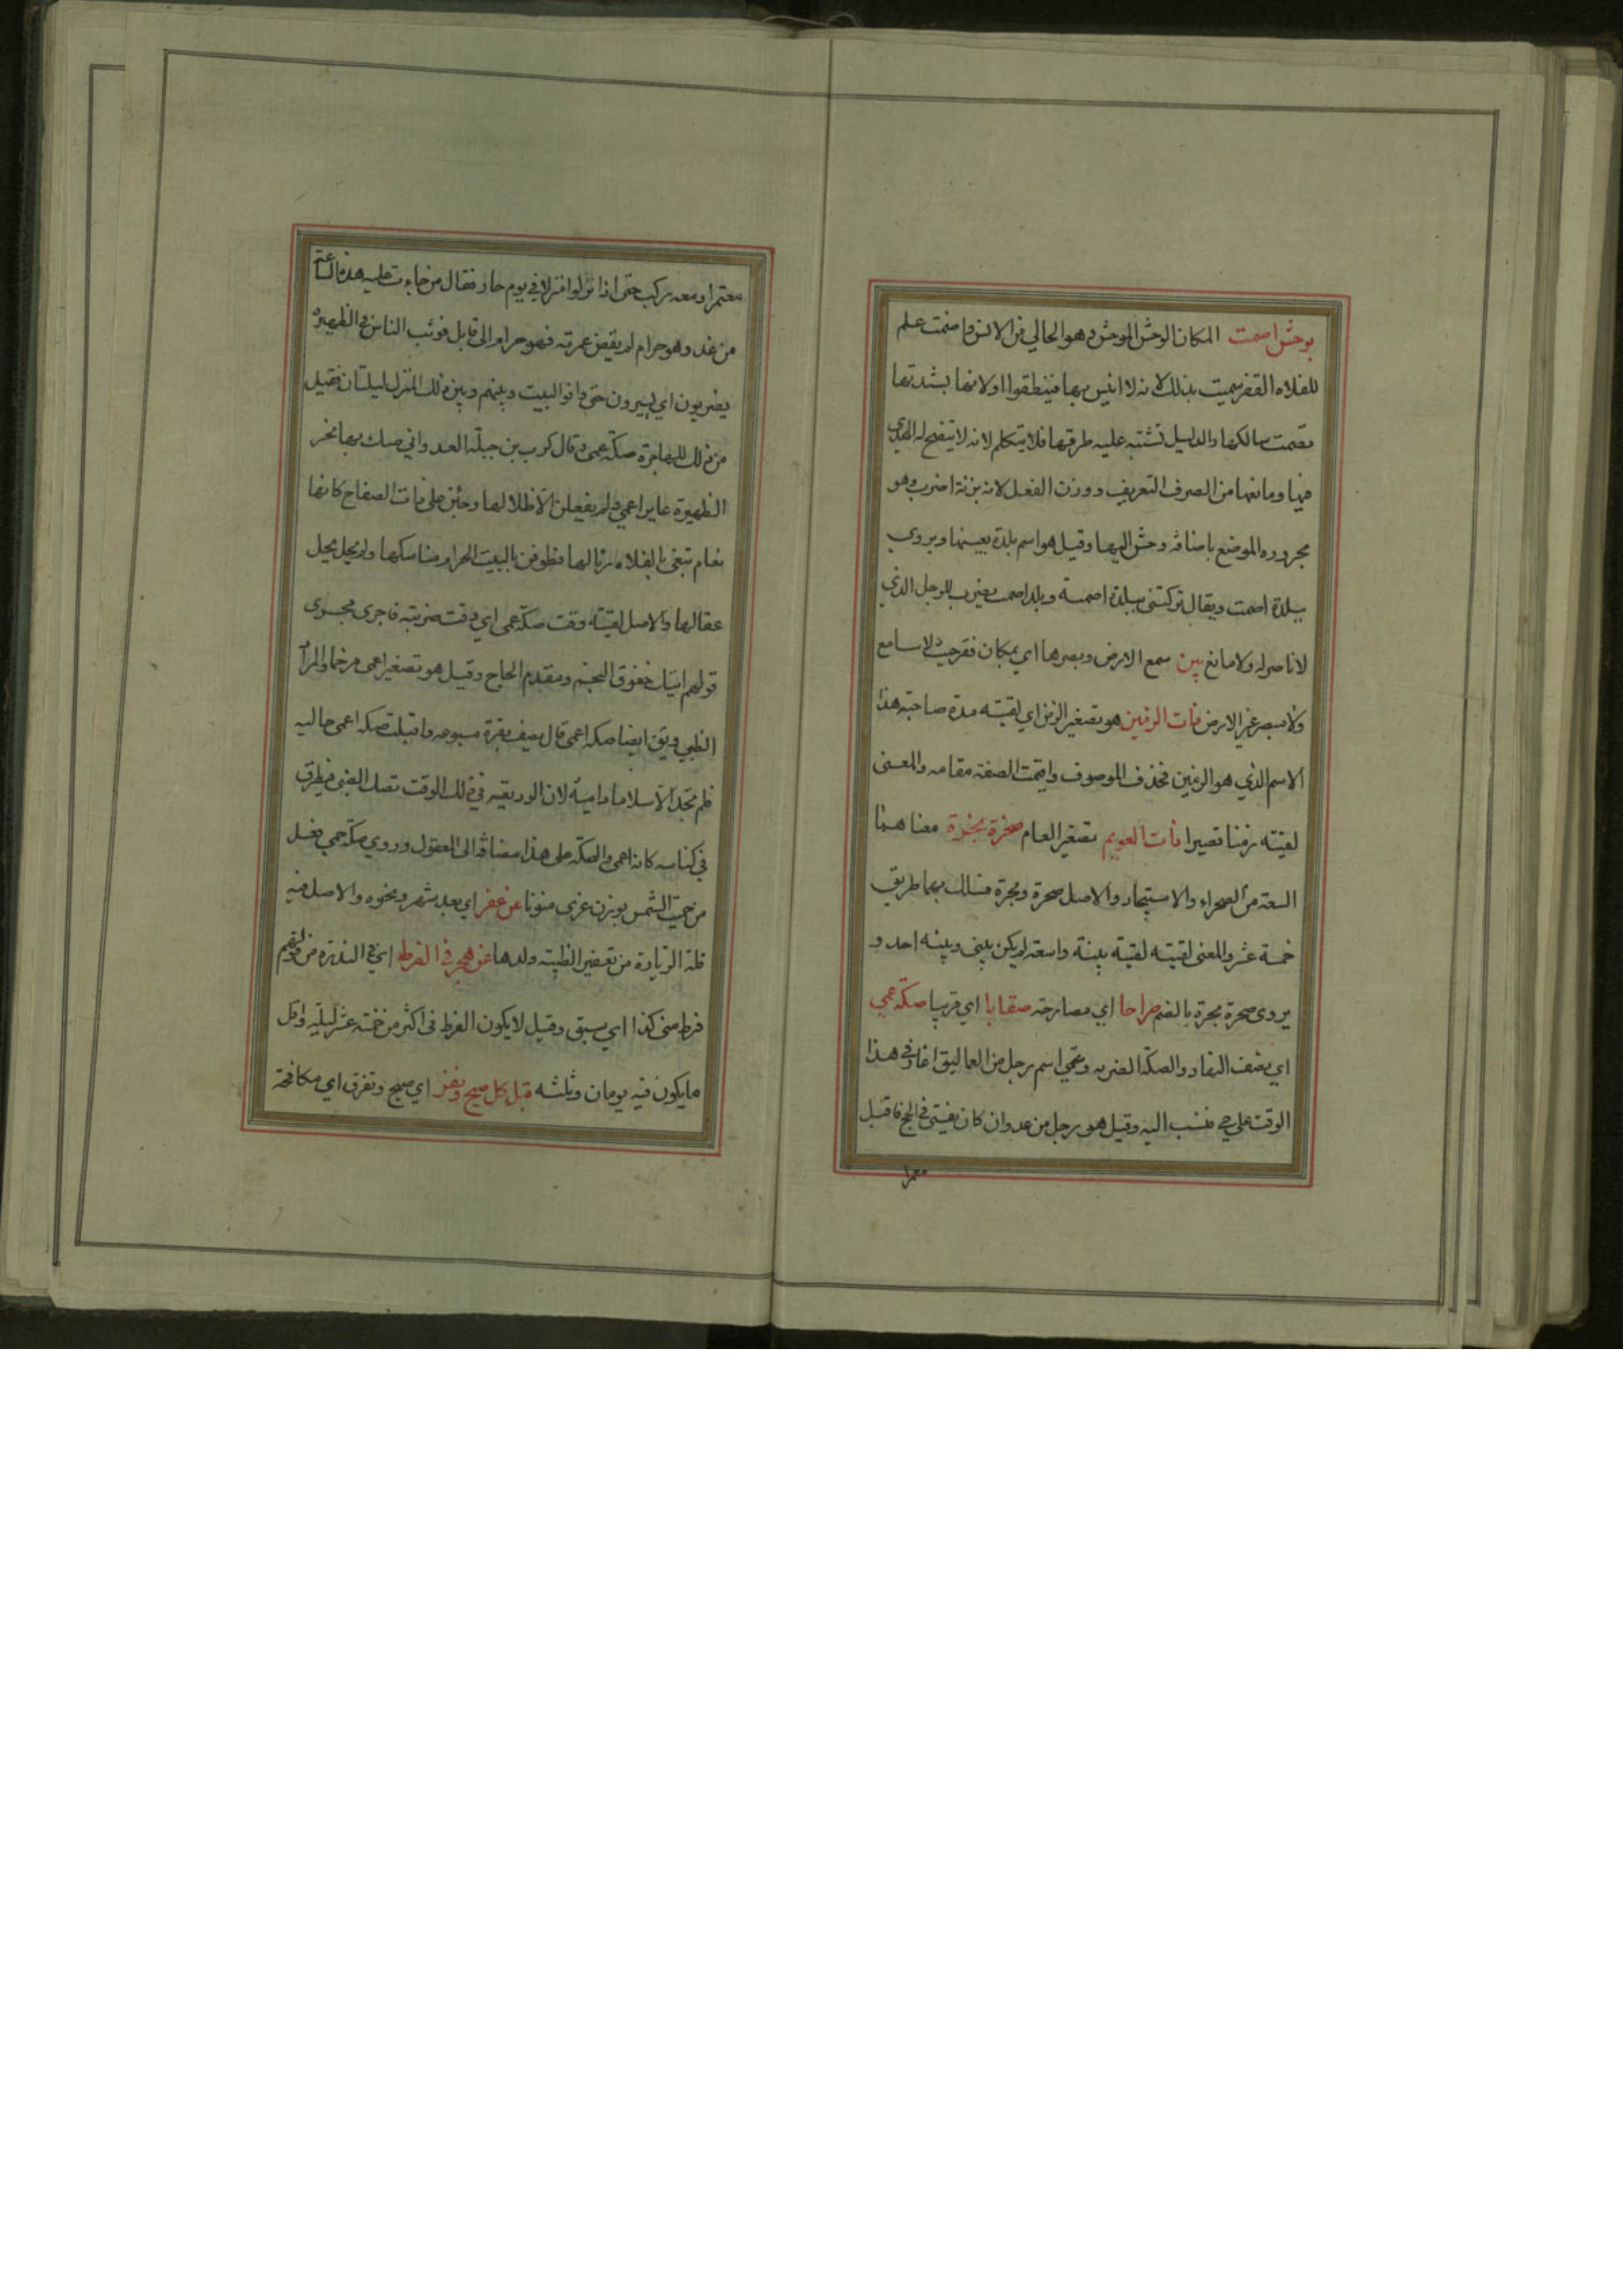 بوحش اصمت المكان الوحش الموحش وهو الخالي من الانس واصمت علم
للفلاه القفر سميت بذلك لانه لا انيس بها فينطقوا او لانها بشدتها
تصمت سالكها والدليل تشتبه عليه طرقها فلا يتكلم لانه لا يتضح له الهدي
فيها ومانعها من الصرف التعريف ووزن الفعل لانه بزنة اضرب وهو
مجرور الموضع باضافة وحش اليها وقيل هو اسم بلدة بعينها ويروي
ببلدة اصمت ويقال تركتني ببلدة اصمتة وبلد اصمت يضرب للرجل الذي
لا ناصر له ولا مانع بين سمع الارض وبصرها اي بمكان قفر حيث لا سامع
ولا مبصر غير الارض ذات الزمين هو تصغير الزمن اي لقيته مدة صاحبة هذا
الاسم الذي هو الزمين فحذف الموصوف واقيمت الصفة مقامه والمعنى
لقيته زمنا قصيرا ذات العويم تصغير العام صحرة بحرة معناهما
السعة من الصحراء والاستبحار والاصل صحرة وبحرة فسلك بهما طريق
خمسة عشر والمعنى لقيته لقية بينة واسعة لم يكن بيني وبينه احد و
يروى صحرة بحرة بالضم صراحا اي مصارحة صقابا اي قريبا صكة عمي
اي نصف النهار والصكة الضربه وعمي اسم رجل من العماليق اغار في هذا
الوقت على حي فنسب اليه وقيل هو رجل من عدوان كان يفتي في الحج فاقبل
معتمرا
معتمرا ومعه ركب حتى اذا نزلوا منزلا في يوم حار فقال من جاءت عليه هذه الساعة
من غد وهو حرام لم يقض عمرته فهو حرام الى قابل فوثب الناس في الظهيرة
يضربون اي يسيرون حتى وافوا البيت وبينهم وبين ذلك المنزل ليلتان فقيل
من ذلك للهاجرة صكة عمي وقال كرب بن جبلة العدواني صك بها نحر
الظهيرة غايرا عمي ولم ينعلن الا ظلالها وجئن على ذات الصفاح كانها
نعام تبغى بالفلاه رئالها فطوفن بالبيت الحرام مناسكها ولم يحل محل
عقالها والاصل لقيته وقت صكة عمي اي وقت ضربته فاجرى مجرى
قولهم اتيتك خفوق النجم ومقدم الحاج وقيل هو تصغير اعمى مرخما والمراد
الظبي ويق ايضا صكة اعمى قال يصف بقرة مسبوعه واقبلت صكة اعمى خاليه
فلم تجد الا سلاما داميه لان الوديقه في ذلك الوقت تصك الظبي فيطرق
في كناسه كانه اعمى والصكة على هذا مضافة الى المفعول وروي صكة حمي فعل
من حميت الشمس بوزن غزى منونا عن عفر اي بعد شهر ونحوه والاصل فيه
قلة الزيارة من تعفير الظبية ولدها عن هجر في الفرط اي في الندرة من قولهم
فرط مني كذا اي سبق وقيل لا يكون الفرط في اكثر من خمسة عشر ليلة واقل
ما يكون فيه يومان وثلثه قبل كل صيح ونفر اي صيح وتفرق اي مكافحة